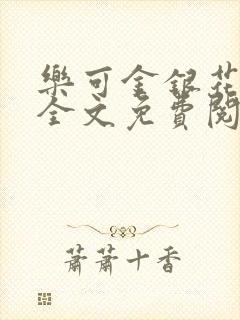 樂可金銀花
全文免費閱
蕭蕭十香